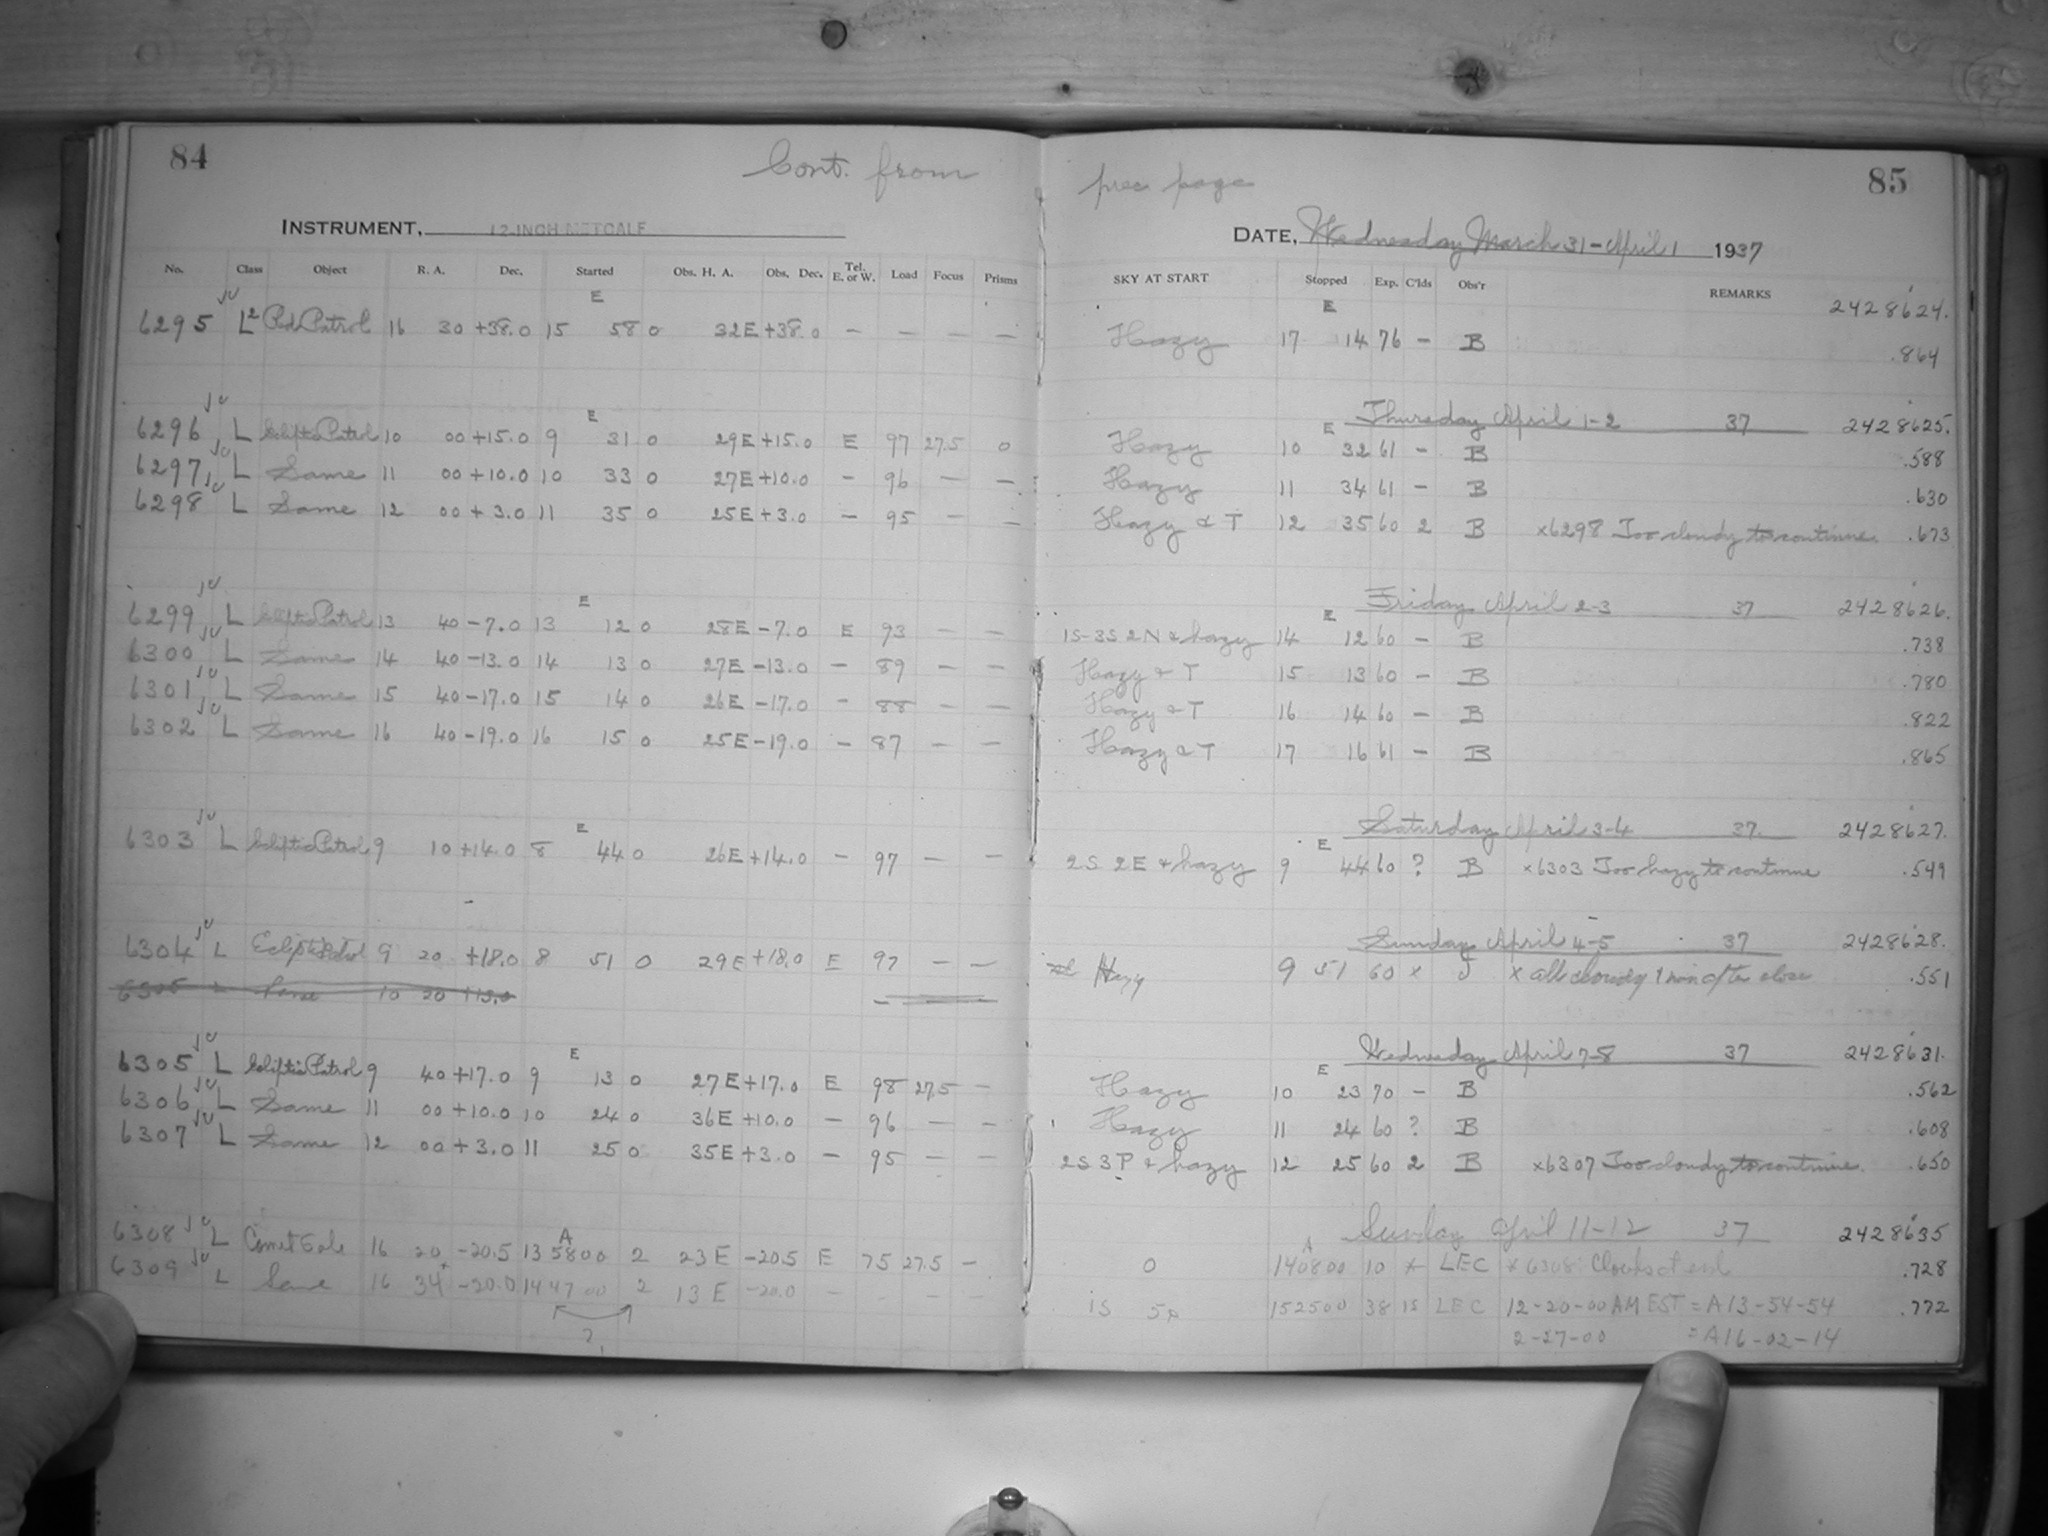 84
Cont. from
INSTRUMENT, 12-INCH METCALF
No. Class Object R. A. Dec. Started Obs. H. A. Obs. Dec. Tel. E. or W. Load Focus Prisms
E
6295 L2 Patrol 16 30 +38.0 15 58 0 32E +38.0 — — — —
E
6296 L Ecliptic Patrol 10 00 +15.0 9 31 0 29E +15.0 E 97 27.5 0
6297 L Same 11 00 +10.0 10 33 0 27E +10.0 — 96 — —
6298 L Same 12 00 + 3.0 11 35 0 25E +3.0 — 95 — —
E
6299 L Ecliptic Patrol 13 40 -7.0 13 12 0 28E -7.0 E 93 — —
6300 L Same 14 40 -13.0 14 13 0 27E -13.0 — 89 — —
6301 L Same 15 40 -17.0 15 14 0 26E -17.0 — 88 — —
6302 L Same 16 40 -19.0 16 15 0 25E -19.0 — 87 — —
E
6303 L Ecliptic Patrol 9 10 +14.0 8 44 0 26E +14.0 — 97 — —
6304 L Ecliptic Patrol 9 20 +18.0 8 51 0 29E +18.0 E 97 — —
6305 L Same 10 20 +13.0 —
E
6305 L Ecliptic Patrol 9 40 +17.0 9 13 0 27E +17.0 E 98 27.5 —
6306 L Same 11 00 +10.0 10 24 0 36E +10.0 — 96 — —
6307 L Same 12 00 + 3.0 11 25 0 35E +3.0 — 95 — —
A
6308 L Comet Gale 16 20 -20.5 13 58 00 2 23 E -20.5 E 75 27.5 —
6309 L Same 16 34 -20.0 14 47 00 2 13 E -20.0 — — — —
?
85
prec page
DATE, Wednesday March 31 - April 1 1937
SKY AT START Stopped Exp. C'lds Obs'r REMARKS
E 2428624.
Hazy 17 14 76 — B .864
E Thursday April 1-2 37 2428625.
Hazy 10 32 61 — B .588
Hazy 11 34 61 — B .630
Hazy & T 12 35 60 2 B x6298 Too cloudy to continue. .673
E Friday April 2-3 37 2428626.
1S-3S 2N & hazy 14 12 60 — B .738
Hazy & T 15 13 60 — B .780
Hazy & T 16 14 60 — B .822
Hazy & T 17 16 61 — B .865
E Saturday April 3-4 37 2428627.
2S 2E & hazy 9 44 60 ? B x6303 Too hazy to continue .549
Sunday April 4-5 37 2428628.
Hazy 9 51 60 x J x all cloudy 1 min after close .551
E Wednesday April 7-8 37 2428631.
Hazy 10 23 70 — B .562
Hazy 11 24 60 ? B .608
2S 3P & hazy 12 25 60 2 B x6307 Too cloudy to continue. .650
A Sunday April 11-12 37 2428635
0 14 08 00 10 x LEC x 6308 Clouds at end .728
1S 5P 15 25 00 38 1S LEC 12-20-00 AM EST = A13-54-54 .772
2-27-00 = A16-02-14